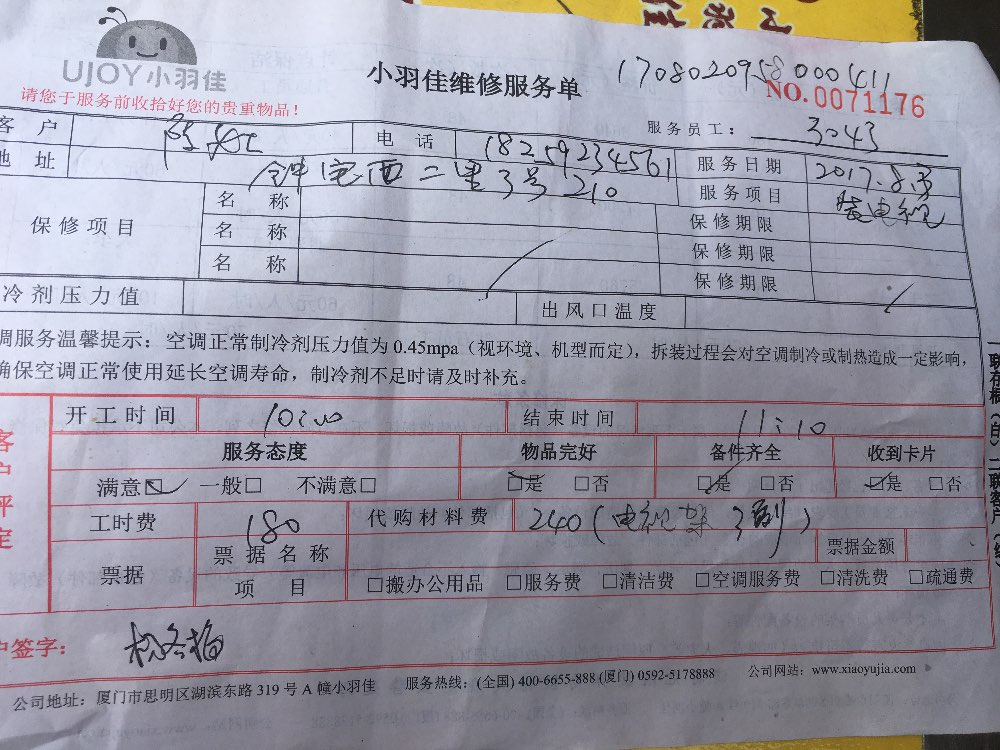 UJOY小羽佳
小羽佳维修服务单
17080209580000411
请您于服务前收拾好您的贵重物品！
NO.0071176
服务员工： 3043
客 户 电 话 18259234561 服务日期 2017.8.3
地 址 钟宅西二里3号210 服务项目 装电视
保修项目 名 称 保修期限
名 称 保修期限
名 称 保修期限
冷剂压力值 出风口温度
调服务温馨提示：空调正常制冷剂压力值为 0.45mpa（视环境、机型而定），拆装过程会对空调制冷或制热造成一定影响，
确保空调正常使用延长空调寿命，制冷剂不足时请及时补充。
客户评定
开工时间 10:00 结束时间 11:10
服务态度 物品完好 备件齐全 收到卡片
满意☑ 一般□ 不满意□ ☑是 □否 ☑是 □否 ☑是 □否
工时费 180 代购材料费 240（电视架3副）
票据 票据名称 票据金额
项 目 □搬办公用品 □服务费 □清洁费 □空调服务费 □清洗费 □疏通费
户签字：
公司地址：厦门市思明区湖滨东路 319 号 A 幢小羽佳 服务热线：(全国) 400-6655-888 (厦门) 0592-5178888 公司网站：www.xiaoyujia.com